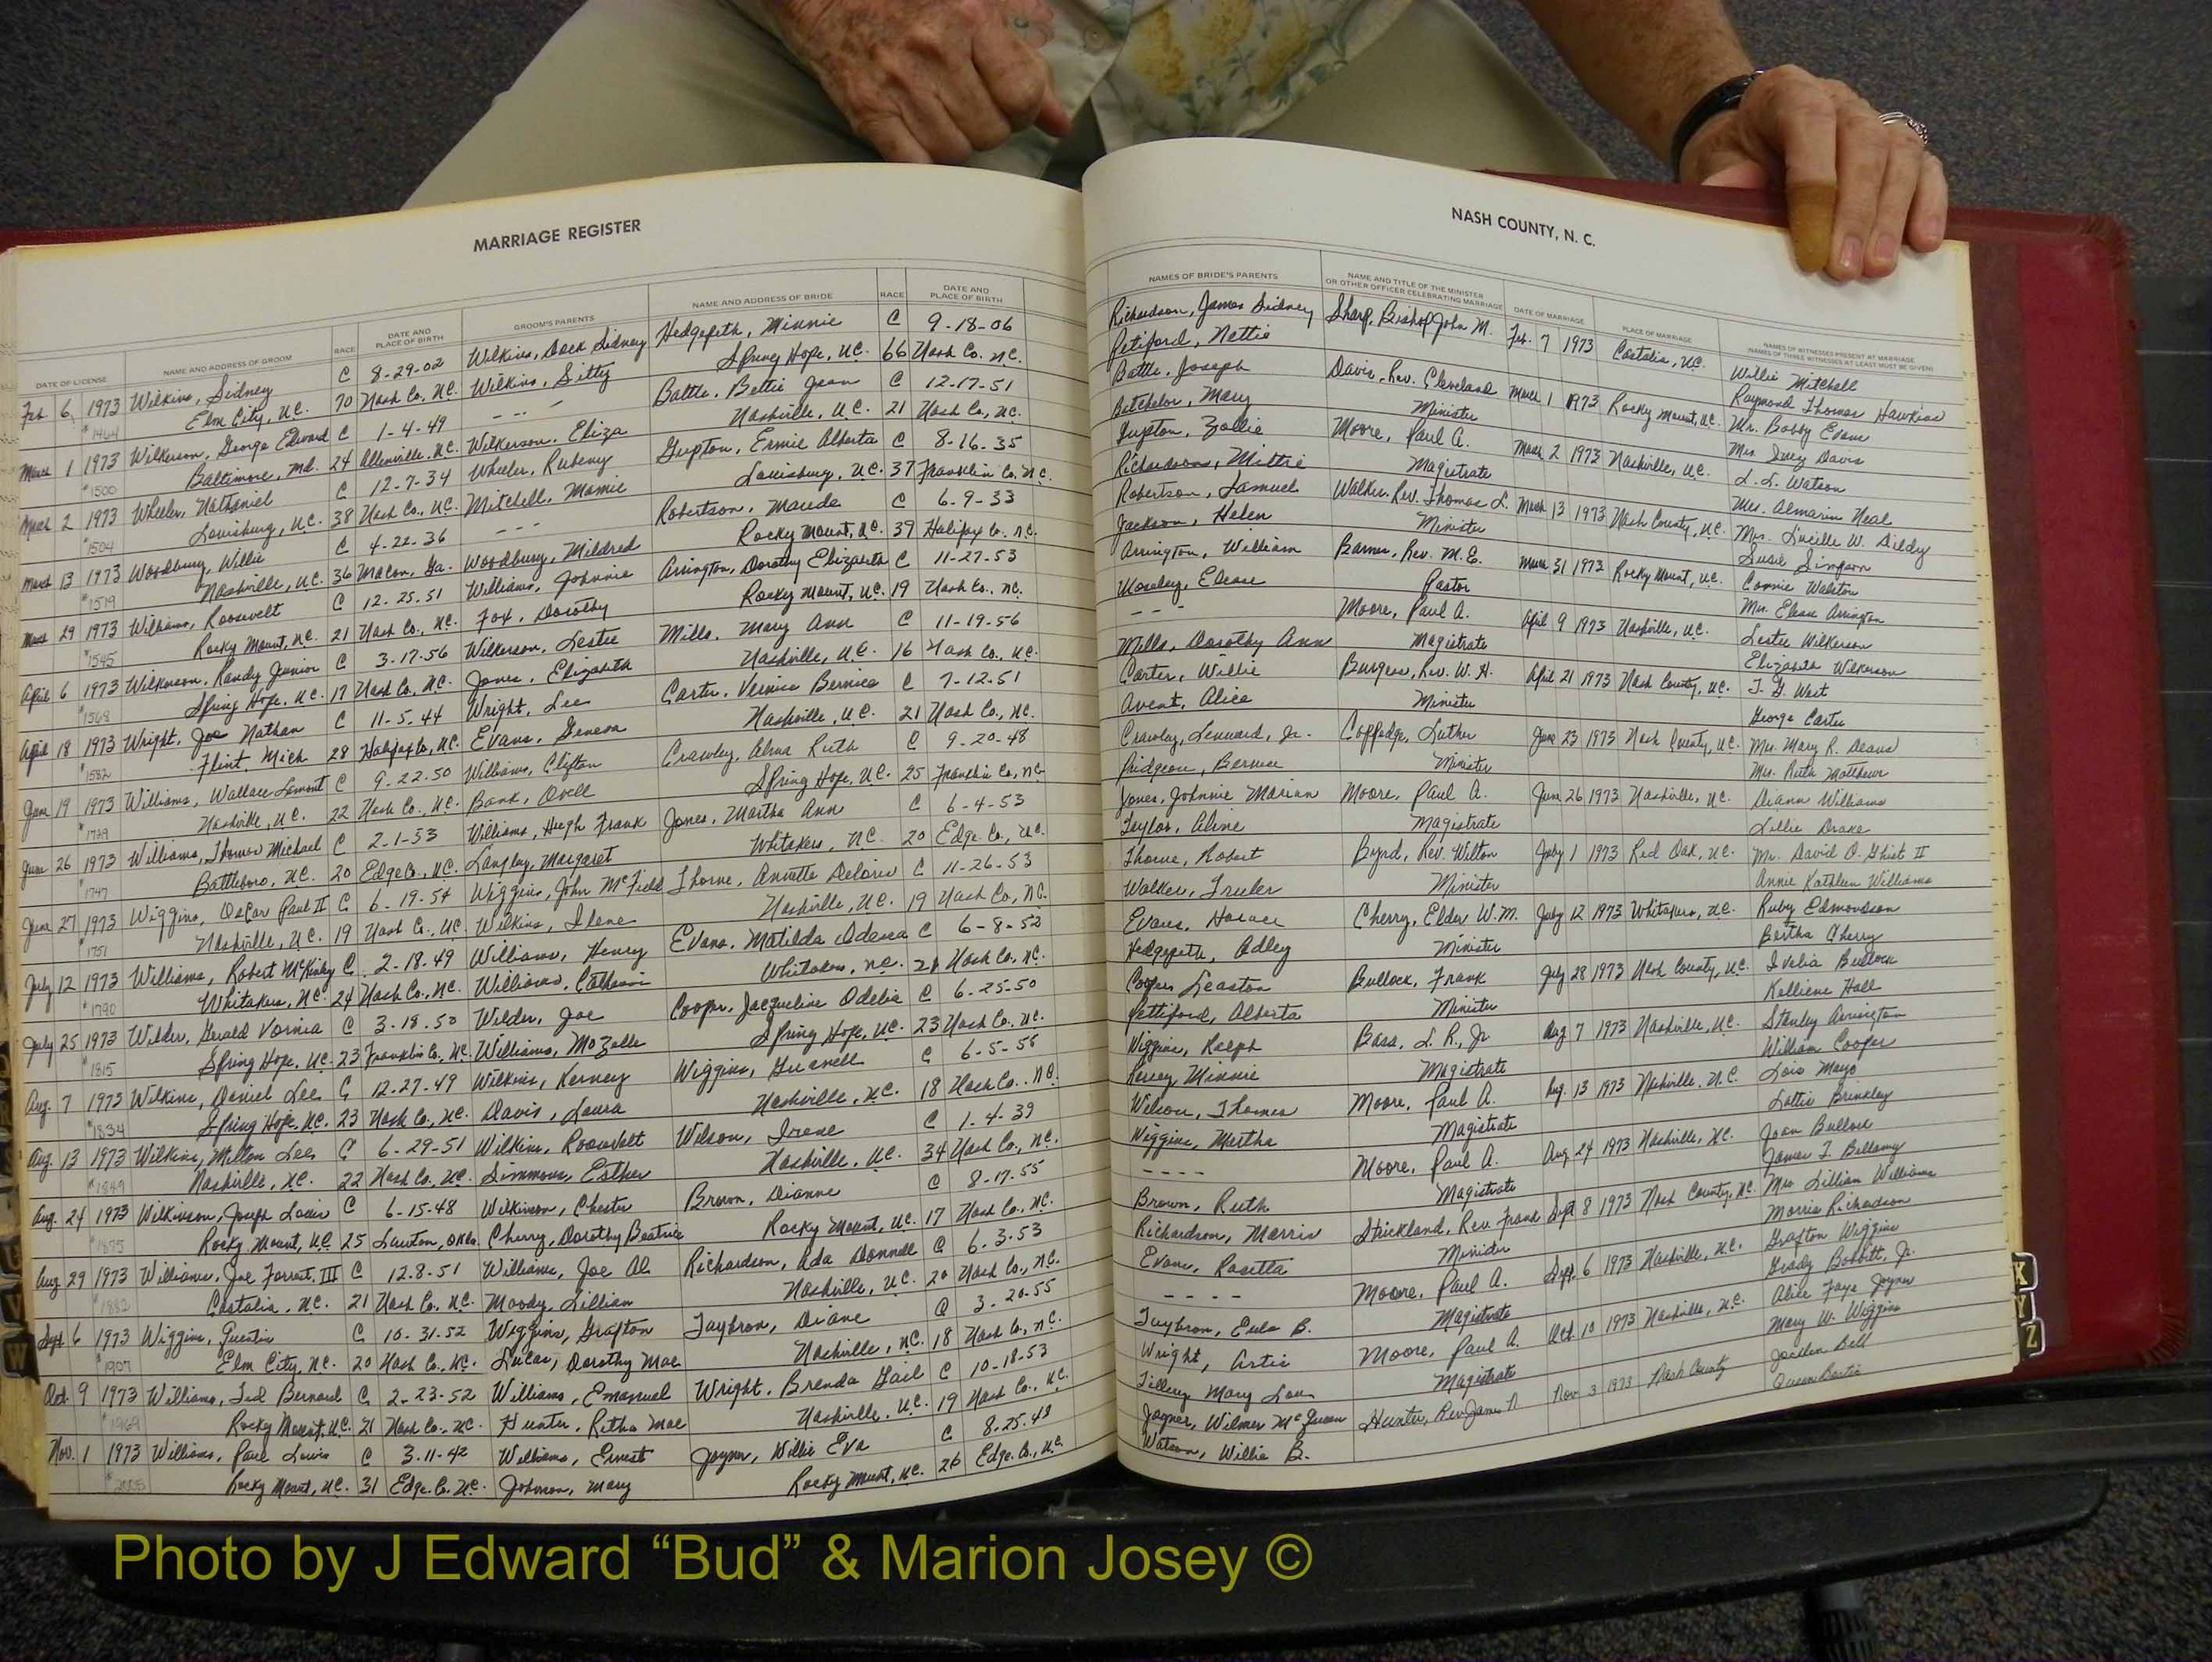 MARRIAGE REGISTER
DATE OF LICENSE NAME AND ADDRESS OF GROOM RACE DATE AND PLACE OF BIRTH GROOM'S PARENTS NAME AND ADDRESS OF BRIDE RACE DATE AND PLACE OF BIRTH
Feb. 6, 1973 Wilkins, Sidney C 8-29-02 Wilkins, Dock Sidney Hedgepeth, Minnie C 9-18-06
#1464 Elm City, N.C. 70 Nash Co., N.C. Wilkins, Sitty Spring Hope, N.C. 66 Nash Co. N.C.
March 1 1973 Wilkerson, George Edward C 1-4-49 - - - Battle, Bettie Jean C 12-17-51
#1500 Baltimore, Md. 24 N.C. Wilkerson, Eliza Nashville, N.C. 21 Nash Co., N.C.
March 2 1973 Wheeler, Nathaniel C 12-7-34 Wheeler, Rubeny Gupton, Ermie Alberta C 8-16-35
#1504 Louisburg, N.C. 38 Nash Co., N.C. Mitchell, Mamie Louisburg, N.C. 37 Franklin Co. N.C.
March 13 1973 Woodbury, Willie C 4-22-36 - - - Robertson, Maude C 6-9-33
#1519 Nashville, N.C. 36 Macon, Ga. Woodbury, Mildred Rocky Mount, N.C. 39 Halifax Co. N.C.
March 29 1973 Williams, Roosevelt C 12-25-51 Williams, Johnnie Arrington, Dorothy Elizabeth C 11-27-53
#1545 Rocky Mount, N.C. 21 Nash Co., N.C. Fox, Dorothy Rocky Mount, N.C. 19 Nash Co., N.C.
April 6 1973 Wilkerson, Randy Junior C 3-17-56 Wilkerson, Leslie Mills, Mary Ann C 11-19-56
#1568 Spring Hope, N.C. 17 Nash Co., N.C. Jones, Elizabeth Nashville, N.C. 16 Nash Co., N.C.
April 18 1973 Wright, Joe Nathan C 11-5-44 Wright, Lee Carter, Vernice Bernice C 7-12-51
#1582 Flint, Mich 28 Halifax Co., N.C. Evans, Geneva Nashville, N.C. 21 Nash Co., N.C.
June 19 1973 Williams, Wallace Lamont C 9-22-50 Williams, Clifton Crawley, Alma Ruth C 9-20-48
#1729 Nashville, N.C. 22 Nash Co., N.C. Bank, Ovell Spring Hope, N.C. 25 Franklin Co., N.C.
June 26 1973 Williams, Thomas Michael C 2-1-53 Williams, Hugh Frank Jones, Martha Ann C 6-4-53
#1747 Battleboro, N.C. 20 Edge Co., N.C. Langley, Margaret Whitakers, N.C. 20 Edge. Co., N.C.
June 27 1973 Wiggins, Oscar Paul II C 6-19-54 Wiggins, John McField Thorne, Annette Delorie C 11-26-53
#1751 Nashville, N.C. 19 Nash Co., N.C. Wilkins, Ilene Nashville, N.C. 19 Nash Co., N.C.
July 12 1973 Williams, Robert McKinley C 2-18-49 Williams, Henry Evans, Matilda C 6-8-52
#1790 Whitakers, N.C. 24 Nash Co., N.C. Williams, Whitakers, N.C. 21 Nash Co. N.C.
July 25 1973 Wilder, Gerald Vornia C 3-18-50 Wilder, Joe Cooper, Jacqueline Odelia C 6-25-50
#1815 Spring Hope, N.C. 23 Franklin Co., N.C. Williams, MoZelle Spring Hope, N.C. 23 Nash Co., N.C.
Aug. 7 1973 Wilkins, Daniel Lee C 12-27-49 Wilkins, Kerney Wiggins, C 6-5-55
#1834 Spring Hope, N.C. 23 Nash Co., N.C. Davis, Laura Nashville, N.C. 18 Nash Co., N.C.
Aug. 13 1973 Wilkins, Milton Lee C 6-29-51 Wilkins, Roosevelt Wilson, Irene C 1-4-39
#1849 Nashville, N.C. 22 Nash Co., N.C. Simmons, Esther Nashville, N.C. 34 Nash Co., N.C.
Aug. 24 1973 Wilkinson, Joseph Louis C 6-15-48 Wilkinson, Chester Brown, Dianne C 8-17-55
Rocky Mount, N.C. 25 Lawton, Okla. Cherry, Dorothy Beatrice Rocky Mount, N.C. 17 Nash Co., N.C.
Aug 29 1973 Williams, Joe Forrest, III C 12-8-51 Williams, Joe Al Richardson, Ada Donnell C 6-3-53
#1882 Castalia, N.C. 21 Nash Co. N.C. Moody, Lillian Nashville, N.C. 20 Nash Co., N.C.
Sept 6 1973 Wiggins, Quentin C 10-31-52 Wiggins, Grafton Taybron, Diane C 3-20-55
#1907 Elm City, N.C. 20 Nash Co., N.C. Lucas, Dorothy Mae Nashville, N.C. 18 Nash Co., N.C.
Oct. 9 1973 Williams, Ted Bernard C 2-23-52 Williams, Emanuel Wright, Brenda Gail C 10-18-53
#1969 Rocky Mount, N.C. 21 Nash Co., N.C. Hunter, Retha Mae Nashville, N.C. 19 Nash Co., N.C.
Nov. 1 1973 Williams, Paul Louis C 3-11-42 Williams, Ernest Joyner, Willie Eva C 8-25-48
Rocky Mount, N.C. 31 Edge. Co. N.C. Johnson, Mary Rocky Mount, N.C. Edge. Co., N.C.
NASH COUNTY, N. C.
NAMES OF BRIDE'S PARENTS NAME AND TITLE OF THE MINISTER OR OTHER OFFICER CELEBRATING MARRIAGE DATE OF MARRIAGE PLACE OF MARRIAGE NAMES OF WITNESSES PRESENT AT MARRIAGE (NAMES OF THREE WITNESSES AT LEAST MUST BE GIVEN)
Richardson, James Sidney Sharp, Bishop John M. Feb. 7 1973 Castalia, N.C. Willie Mitchell
Petiford, Nettie Raymond Thomas Hawkins
Battle, Joseph Davis, Rev. Cleveland March 1 1973 Rocky Mount, N.C. Mr. Bobby Evans
Batchelor, Mary Minister Mrs. Davis
Gupton, Zollie Moore, Paul A. March 2 1973 Nashville, N.C. L. L. Watson
Richardson, Mittie Magistrate Mrs. Almarin Neal
Robertson, Samuel Walker, Rev. Thomas L. March 13 1973 Nash County, N.C. Mrs. Lucille W. Diddy
Jackson, Helen Minister Susie Simpson
Arrington, William Barnes, Rev. M. E. March 31 1973 Rocky Mount, N.C. Connie Walston
Moseley, Elease Pastor Mrs. Elease Arrington
- - - Moore, Paul A. April 9 1973 Nashville, N.C. Leslie Wilkerson
Mills, Dorothy Ann Magistrate Elizabeth Wilkerson
Carter, Willie Burgess, Rev. W. H. April 21 1973 Nash County, N.C. T. G. West
Avent, Alice Minister George Carter
Crawley, Lennard, Jr. Coppedge, Luther June 23 1973 Nash County, N.C. Mrs. Mary R. Deans
Pridgeon, Bernice Minister Mrs. Ruth Matthews
Jones, Johnnie Marian Moore, Paul A. June 26 1973 Nashville, N.C. Diann Williams
Taylor, Aline Magistrate Lillie Drake
Thorne, Robert Byrd, Rev. Wilton July 1 1973 Red Oak, N.C. Mr. David O. Ghist II
Walker, Truler Minister Annie Kathleen Williams
Evans, Horace Cherry, Elder W.M. July 12 1973 Whitakers, N.C. Ruby Edmondson
Hedgepeth, Adley Minister Bertha Cherry
Cooper Leaston Bullock, Frank July 28 1973 Nash County, N.C. Ivelia Bullock
Pettiford, Alberta Minister Kalliene Hall
Wiggins, Ralph Bass, L. R., Jr Aug 7 1973 Nashville, N.C. Stanley Arrington
Minnie Magistrate William Cooper
Wilson, Thomas Moore, Paul A. Aug. 13 1973 Nashville, N.C. Lois Mayo
Wiggins, Martha Magistrate Lottie Brinkley
- - - - Moore, Paul A. Aug 24 1973 Nashville, N.C. Joan Bullock
Brown, Ruth Magistrate James T. Bellamy
Richardson, Morris Strickland, Rev. Frank Sept 8 1973 Nash County, N.C. Mrs Lillian Williams
Evans, Rosetta Minister Morris Richardson
- - - - Moore, Paul A. Sept. 6 1973 Nashville, N.C. Grafton Wiggins
Taybron, Eula B. Magistrate Grady Bobbitt, Jr.
Wright, Artis Moore, Paul A. Oct. 10 1973 Nashville, N.C. Alice Faye Joyner
Tillery Mary Lou Magistrate Mary W. Wiggins
Joyner, Wilmer McQueen Hunter, Rev James Nov. 3 1973 Nash County Bell
Watson, Willie B. Queen
V
W
X
Y
Z
Photo by J Edward “Bud” & Marion Josey ©